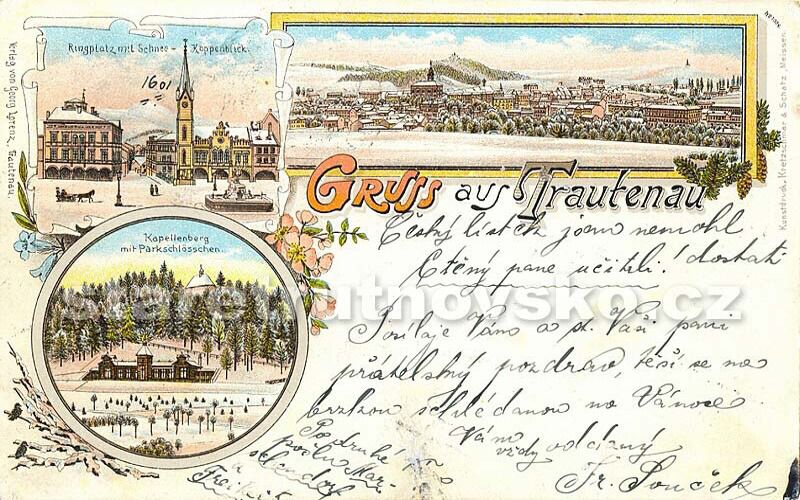 Ringplatz mit Schnee-Koppenblick.
1601
Verlag von Georg Lorenz, Trautenau
Kunstdruck, Kretzschmar & Schatz, Meissen.
Gruss aus Trautenau
Kapellenberg
mit Parkschlösschen.
staretrutnovsko.cz
Český lístek jsem nemohl
dostati
Ctěný pane učiteli!
Posílaje Vám a st. Vaší paní
přátelský pozdrav, těší se na
brzkou schledanou na Vánoce
Vám
vždy oddaný
Fr. Souček
Po druhé